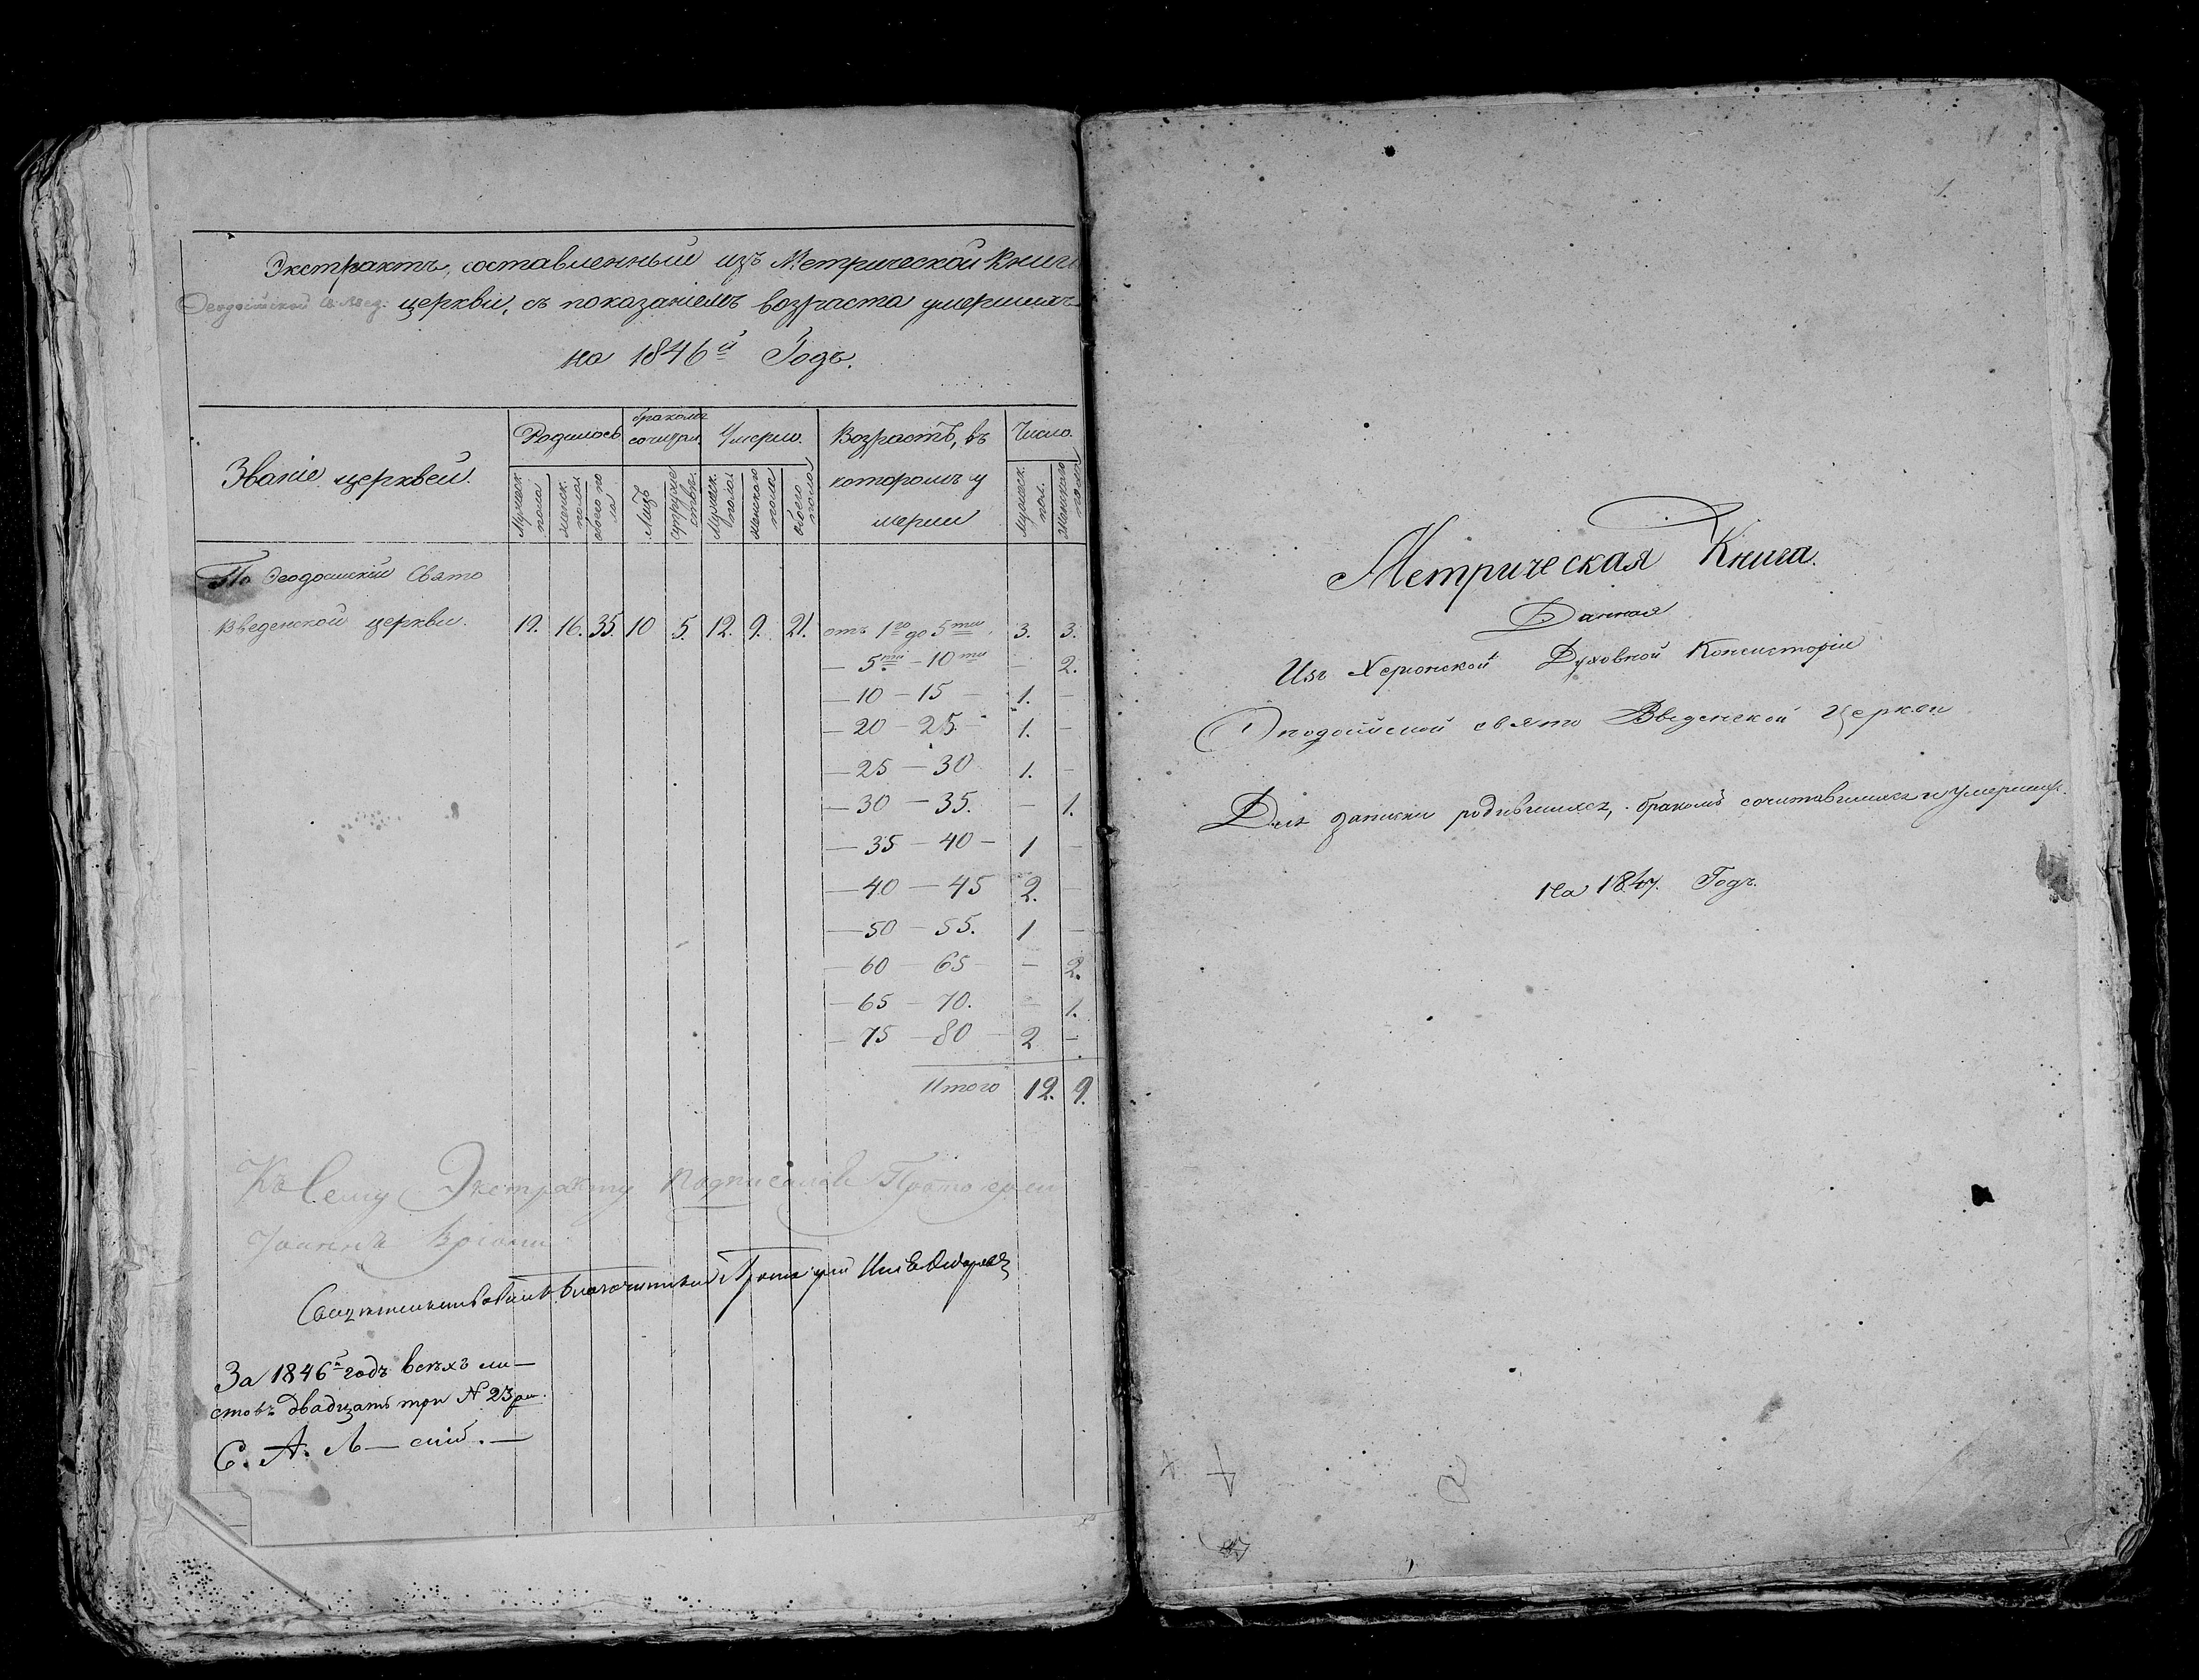 Экстрактъ, составленный изъ Метрической Книги
Ѳеодосійской Св. Введ. церкви, съ показаніемъ возраста умершихъ
на 1846й Годъ.
Званіе церквей.
Родилось
бракомъ сочетал.
Умерло.
Возрастъ, въ которомъ умерли
Число.
Мужеск. пола
женск. пола
обоего пола
Лицъ
супружествъ.
Мужеск. пола
женскаго пола
обоего пола
мужеск. пол.
Женскаго пола
По Ѳеодосійской Свято
Введенской церкви. 19. 16. 35. 10 5. 12. 9. 21. отъ 1го до 5ти 3. 3.
— 5ти — 10ти — 2.
— 10 — 15 — 1. —
— 20 — 25. — 1. —
— 25 — 30 1. —
— 30 — 35. — 1.
— 35 — 40 — 1 —
— 40 — 45 2. —
— 50 — 55. 1 —
— 60 — 65 — 2.
— 65 — 70. — 1.
— 75 — 80 2 —
Итого 12. 9.
Къ Сему Экстракту подписался Протоіерей
Іоаннъ
Протоіерей
За 1846й годъ всехъ ли—
стовъ двадцать три № 23
С. А. Л— скій. —
Метрическая Книга.
Данная
Изъ Херсонской Духовной Консисторіи
Ѳеодосійской свято Введенской Церкви
Для записки родившихся, бракомъ сочитавшихся и умершихъ.
На 1847. Годъ.